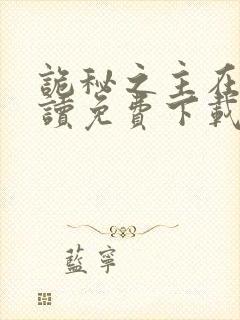 詭秘之主在
讀免費下載
藍寧